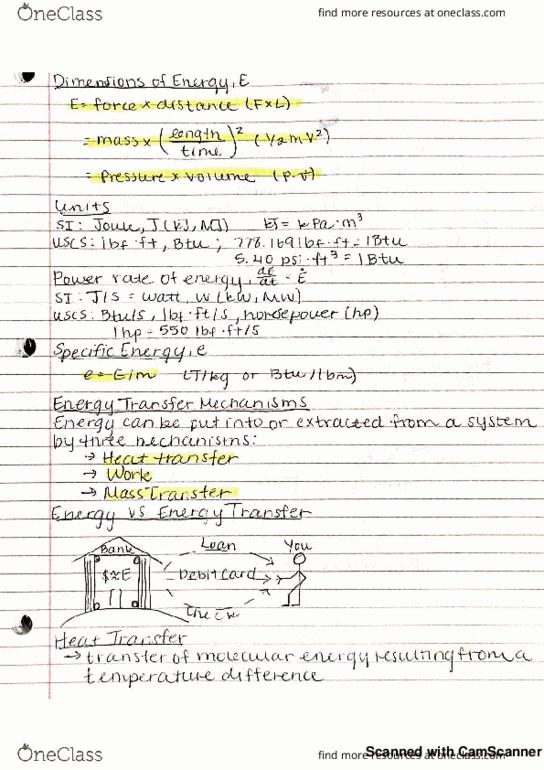 OneClass
find more resources at oneclass.com
Dimensions of Energy, E
E = force x distance (F x L)
= mass x (length/time)² (1/2 m V²)
= Pressure x volume (P·V)
Units
SI: Joule, J (kJ, MJ) kJ = kPa·m³
USCS: lbf·ft, Btu; 778.169 lbf·ft = 1Btu
5.40 psi·ft³ = 1Btu
Power rate of energy, dE/dt = Ė
SI: J/s = watt, W (kW, MW)
USCS: Btu/s, lbf·ft/s, horsepower (hp)
1hp = 550 lbf·ft/s
Specific Energy, e
e = E/m (J/kg or Btu/lbm)
Energy Transfer Mechanisms
Energy can be put into or extracted from a system
by three mechanisms:
→ Heat transfer
→ Work
→ Mass Transfer
Energy vs Energy Transfer
Bank Loan You
$≈E Debit Card
Check
Heat Transfer
→ transfer of molecular energy resulting from a
temperature difference
OneClass
find more resources at oneclass.com
Scanned with CamScanner